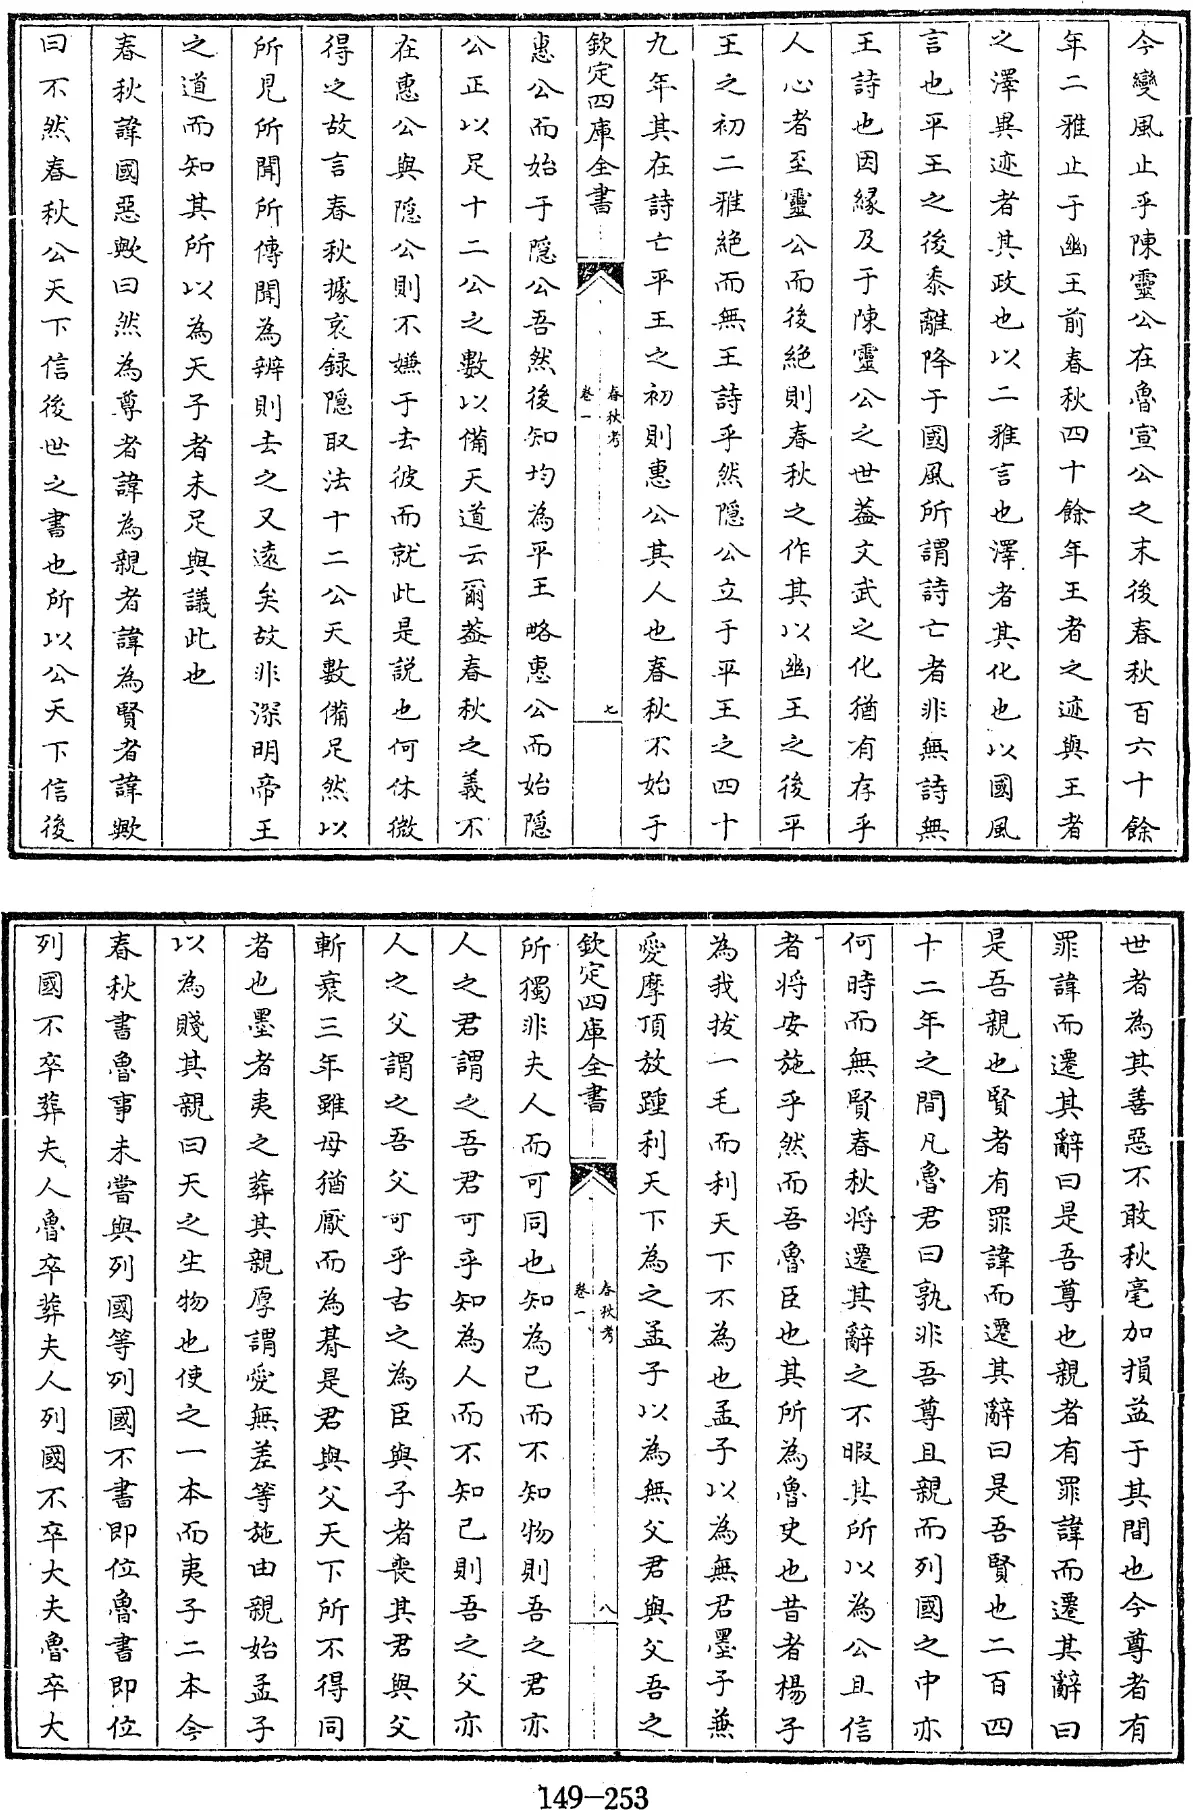 今變風止乎陳靈公在魯宣公之末後春秋百六十餘
年二雅止于幽王前春秋四十餘年王者之迹與王者
之澤異迹者其政也以二雅言也澤者其化也以國風
言也平王之後黍離降于國風所謂詩亡者非無詩無
王詩也因縁及于陳靈公之世葢文武之化猶有存乎
人心者至靈公而後絶則春秋之作其以幽王之後平
王之初二雅絶而無王詩乎然隠公立于平王之四十
九年其在詩亡平王之初則惠公其人也春秋不始于
欽定四庫全書
春秋考
卷一
七
惠公而始于隠公吾然後知均為平王略惠公而始隠
公正以足十二公之數以備天道云爾葢春秋之義不
在惠公與隠公則不嫌于去彼而就此是説也何休微
得之故言春秋據哀録隠取法十二公天數備足然以
所見所聞所傳聞為辨則去之又逺矣故非深明帝王
之道而知其所以為天子者未足與議此也
春秋諱國惡歟曰然為尊者諱為親者諱為賢者諱歟
曰不然春秋公天下信後世之書也所以公天下信後
世者為其善惡不敢秋毫加損益于其間也今尊者有
罪諱而遷其辭曰是吾尊也親者有罪諱而遷其辭曰
是吾親也賢者有罪諱而遷其辭曰是吾賢也二百四
十二年之間凡魯君曰孰非吾尊且親而列國之中亦
何時而無賢春秋将遷其辭之不暇其所以為公且信
者将安施乎然而吾魯臣也其所為魯史也昔者楊子
為我拔一毛而利天下不為也孟子以為無君墨子兼
愛摩頂放踵利天下為之孟子以為無父君與父吾之
欽定四庫全書
春秋考
卷一
八
所獨非夫人而可同也知為己而不知物則吾之君亦
人之君謂之吾君可乎知為人而不知己則吾之父亦
人之父謂之吾父可乎古之為臣與子者喪其君與父
斬衰三年雖母猶厭而為朞是君與父天下所不得同
者也墨者夷之葬其親厚謂愛無差等施由親始孟子
以為賤其親曰天之生物也使之一本而夷子二本今
春秋書魯事未嘗與列國等列國不書即位魯書即位
列國不卒葬夫人魯卒葬夫人列國不卒大夫魯卒大
149-253